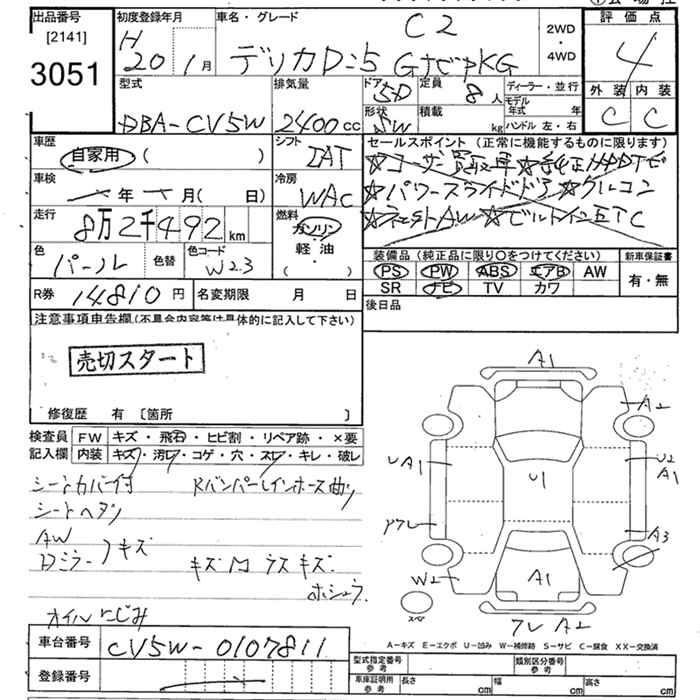 出品番号
[2141]
3051
初度登録年月
H
20 1月
車名・グレード
C2
デリカD:5 GナビPKG
2WD
・
4WD
評価点
4
外装 内装
C C
型式
DBA-CV5W
排気量
2400cc
ドア
5D
形状
SW
定員
8人
積載
kg
ディーラー・並行
モデル
年式 年
ハンドル 左・右
車歴
自家用 ( )
シフト
IAT
車検
年 月( 日)
冷房
WAC
走行
8万2千492km
燃料
ガソリン
・
軽油
( )
色
パール
色替
色コード
W23
R券 14810円
名変期限 月 日
セールスポイント(正常に機能するものに限ります)
☆ユーザー買取車☆純正HDDナビ
☆パワースライドドア☆クルコン
☆AW☆ビルトインETC
装備品(純正品に限り○をつけてください)
PS PW ABS エアB AW
SR ナビ TV カワ
新車保証書
有・無
後日品
注意事項申告欄(不具合内容等は具体的に記入して下さい)
売切スタート
修復歴 有 〔箇所 〕
検査員
記入欄
FW キズ・飛石・ヒビ割・リペア跡・×要
内装 キズ・汚レ・コゲ・穴・スレ・キレ・破レ
シートカバー付 Rバンパーレインホース曲り
シートヘタリ
AW
Dミラー キズ
キズ 凹 ラスキズ
ホシュウ
オイルにじみ
車台番号 CV5W-0107811
登録番号
A1
A2
UA1
U2
A1
U1
アフレ
A3
W2
A1
スペア
フレ A2
A-キズ E-エクボ U-凹み W-補修跡 S-サビ C-腐食 XX-交換済
型式指定番号
参考
類別区分番号
参考
車庫証明用
参考
長さ cm 幅 cm 高さ cm